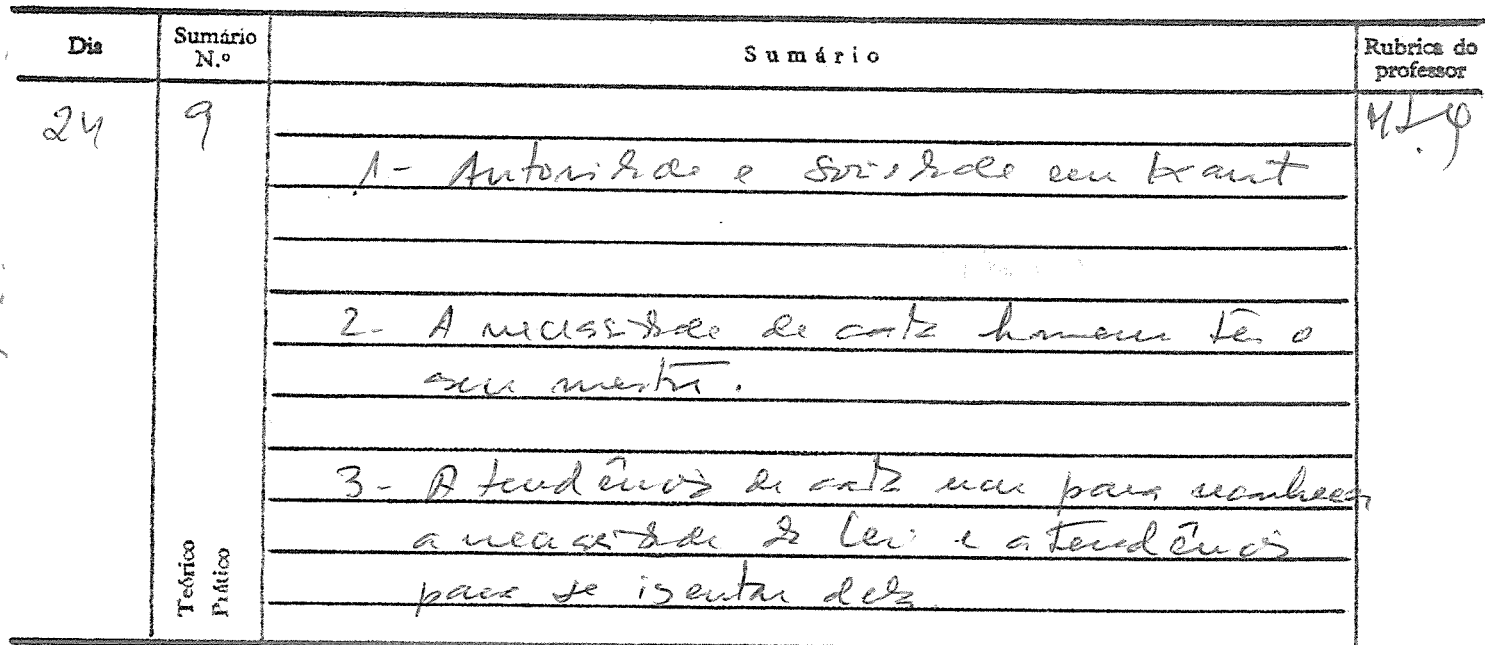 Dia
Sumário N.º
Sumário
Rubrica do professor
24
9
1 - Autoridade e Sociedade em Kant
2 - A necessidade de cada homem ter o
seu mestre.
3 - A tendência de cada um para reconhecer
a necessidade da lei e a tendência
para se isentar dela.
Teórico
Prático